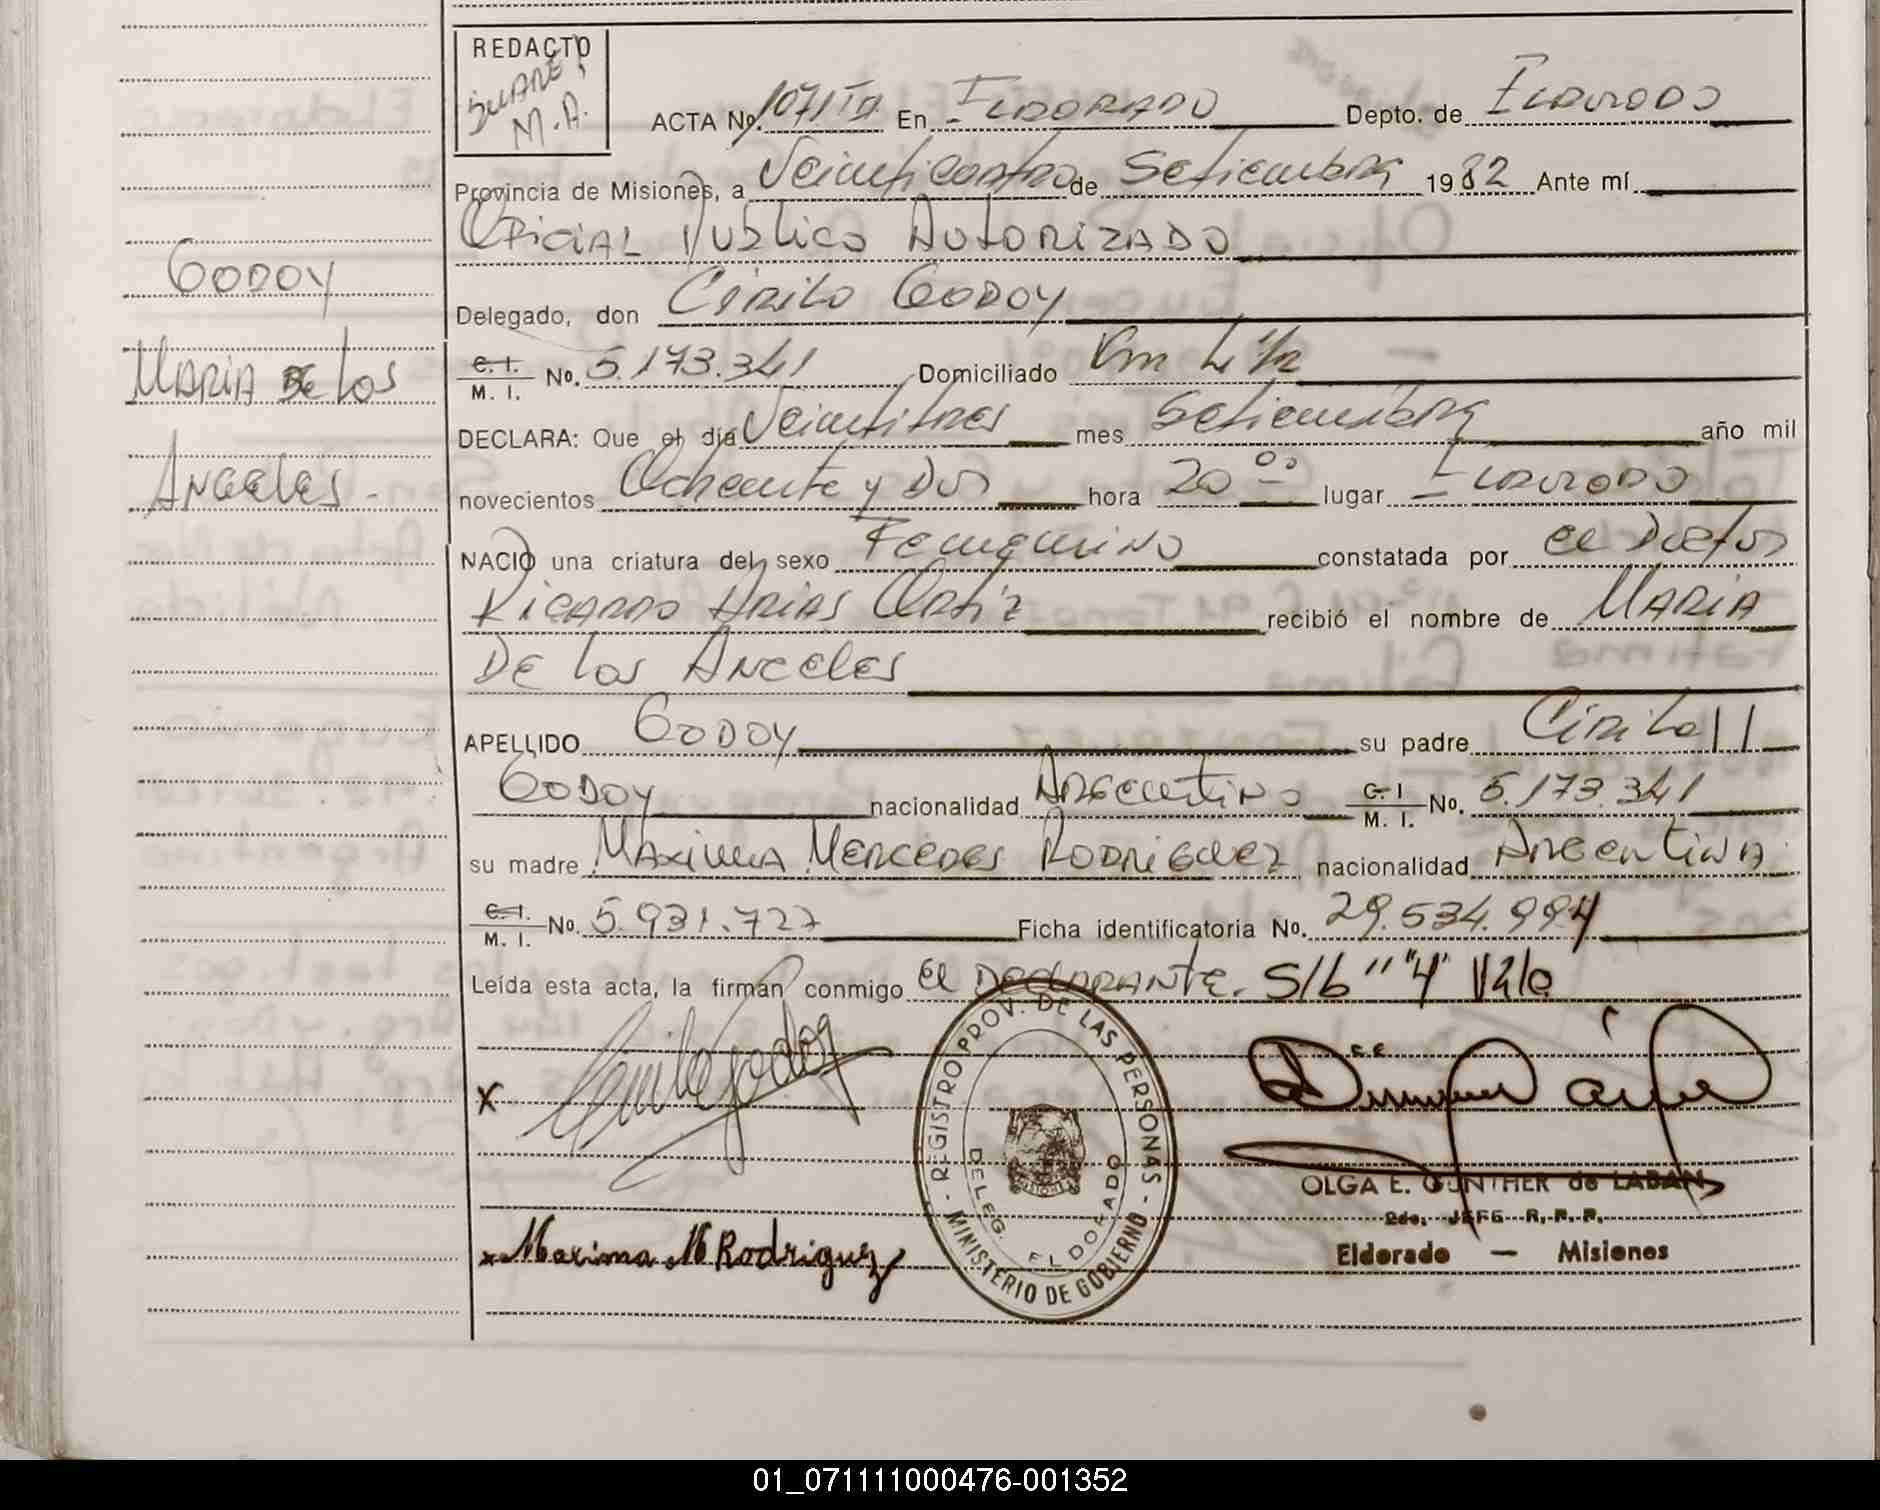 REDACTO
SUAREZ
M.A.
ACTA No. 1071 En ELDORADO Depto. de ELDORADO
Provincia de Misiones, a Veinticuatro de Setiembre 1982 Ante mí
OFICIAL PUBLICO AUTORIZADO
Delegado, don CIRILO GODOY
C. I. / M. I. No. 5.173.341 Domiciliado Km 4 1/2
DECLARA: Que el día Veintitres mes Setiembre año mil
novecientos Ochenta y Dos hora 20 00 lugar ELDORADO
NACIO una criatura del sexo Femenino constatada por el Doctor
RICARDO ARIAS ORTIZ recibió el nombre de MARIA
DE LOS ANGELES
APELLIDO GODOY su padre CIRILO
GODOY nacionalidad ARGENTINO C. I / M. I. No. 5.173.341
su madre MAXIMA MERCEDES RODRIGUEZ nacionalidad ARGENTINA
C. I. / M. I. No. 5.931.727 Ficha identificatoria No. 29.534.994
Leída esta acta, la firman conmigo el DECLARANTE. S/b "4" Vale
GODOY
MARIA DE LOS
ANGELES.-
x Cirilo Godoy
x Maxima M Rodriguez
REGISTRO PROV. DE LAS PERSONAS
DELEG. ELDORADO
MISIONES
MINISTERIO DE GOBIERNO
OLGA E. GUNTHER de LABAN
2do. JEFE R.P.P.
Eldorado — Misiones
01_071111000476-001352